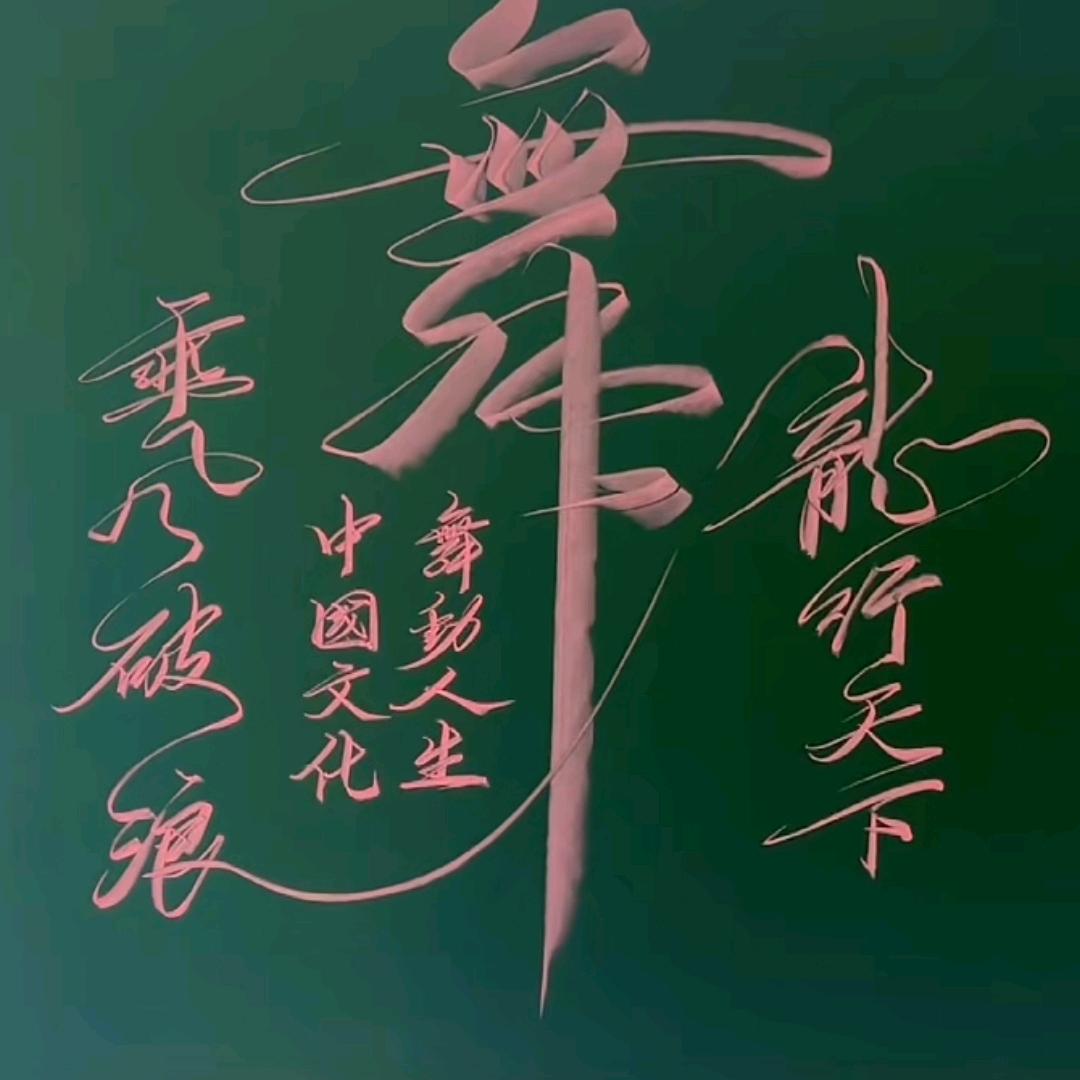 龍行天下
舞
舞動人生
中國文化
乘風破浪